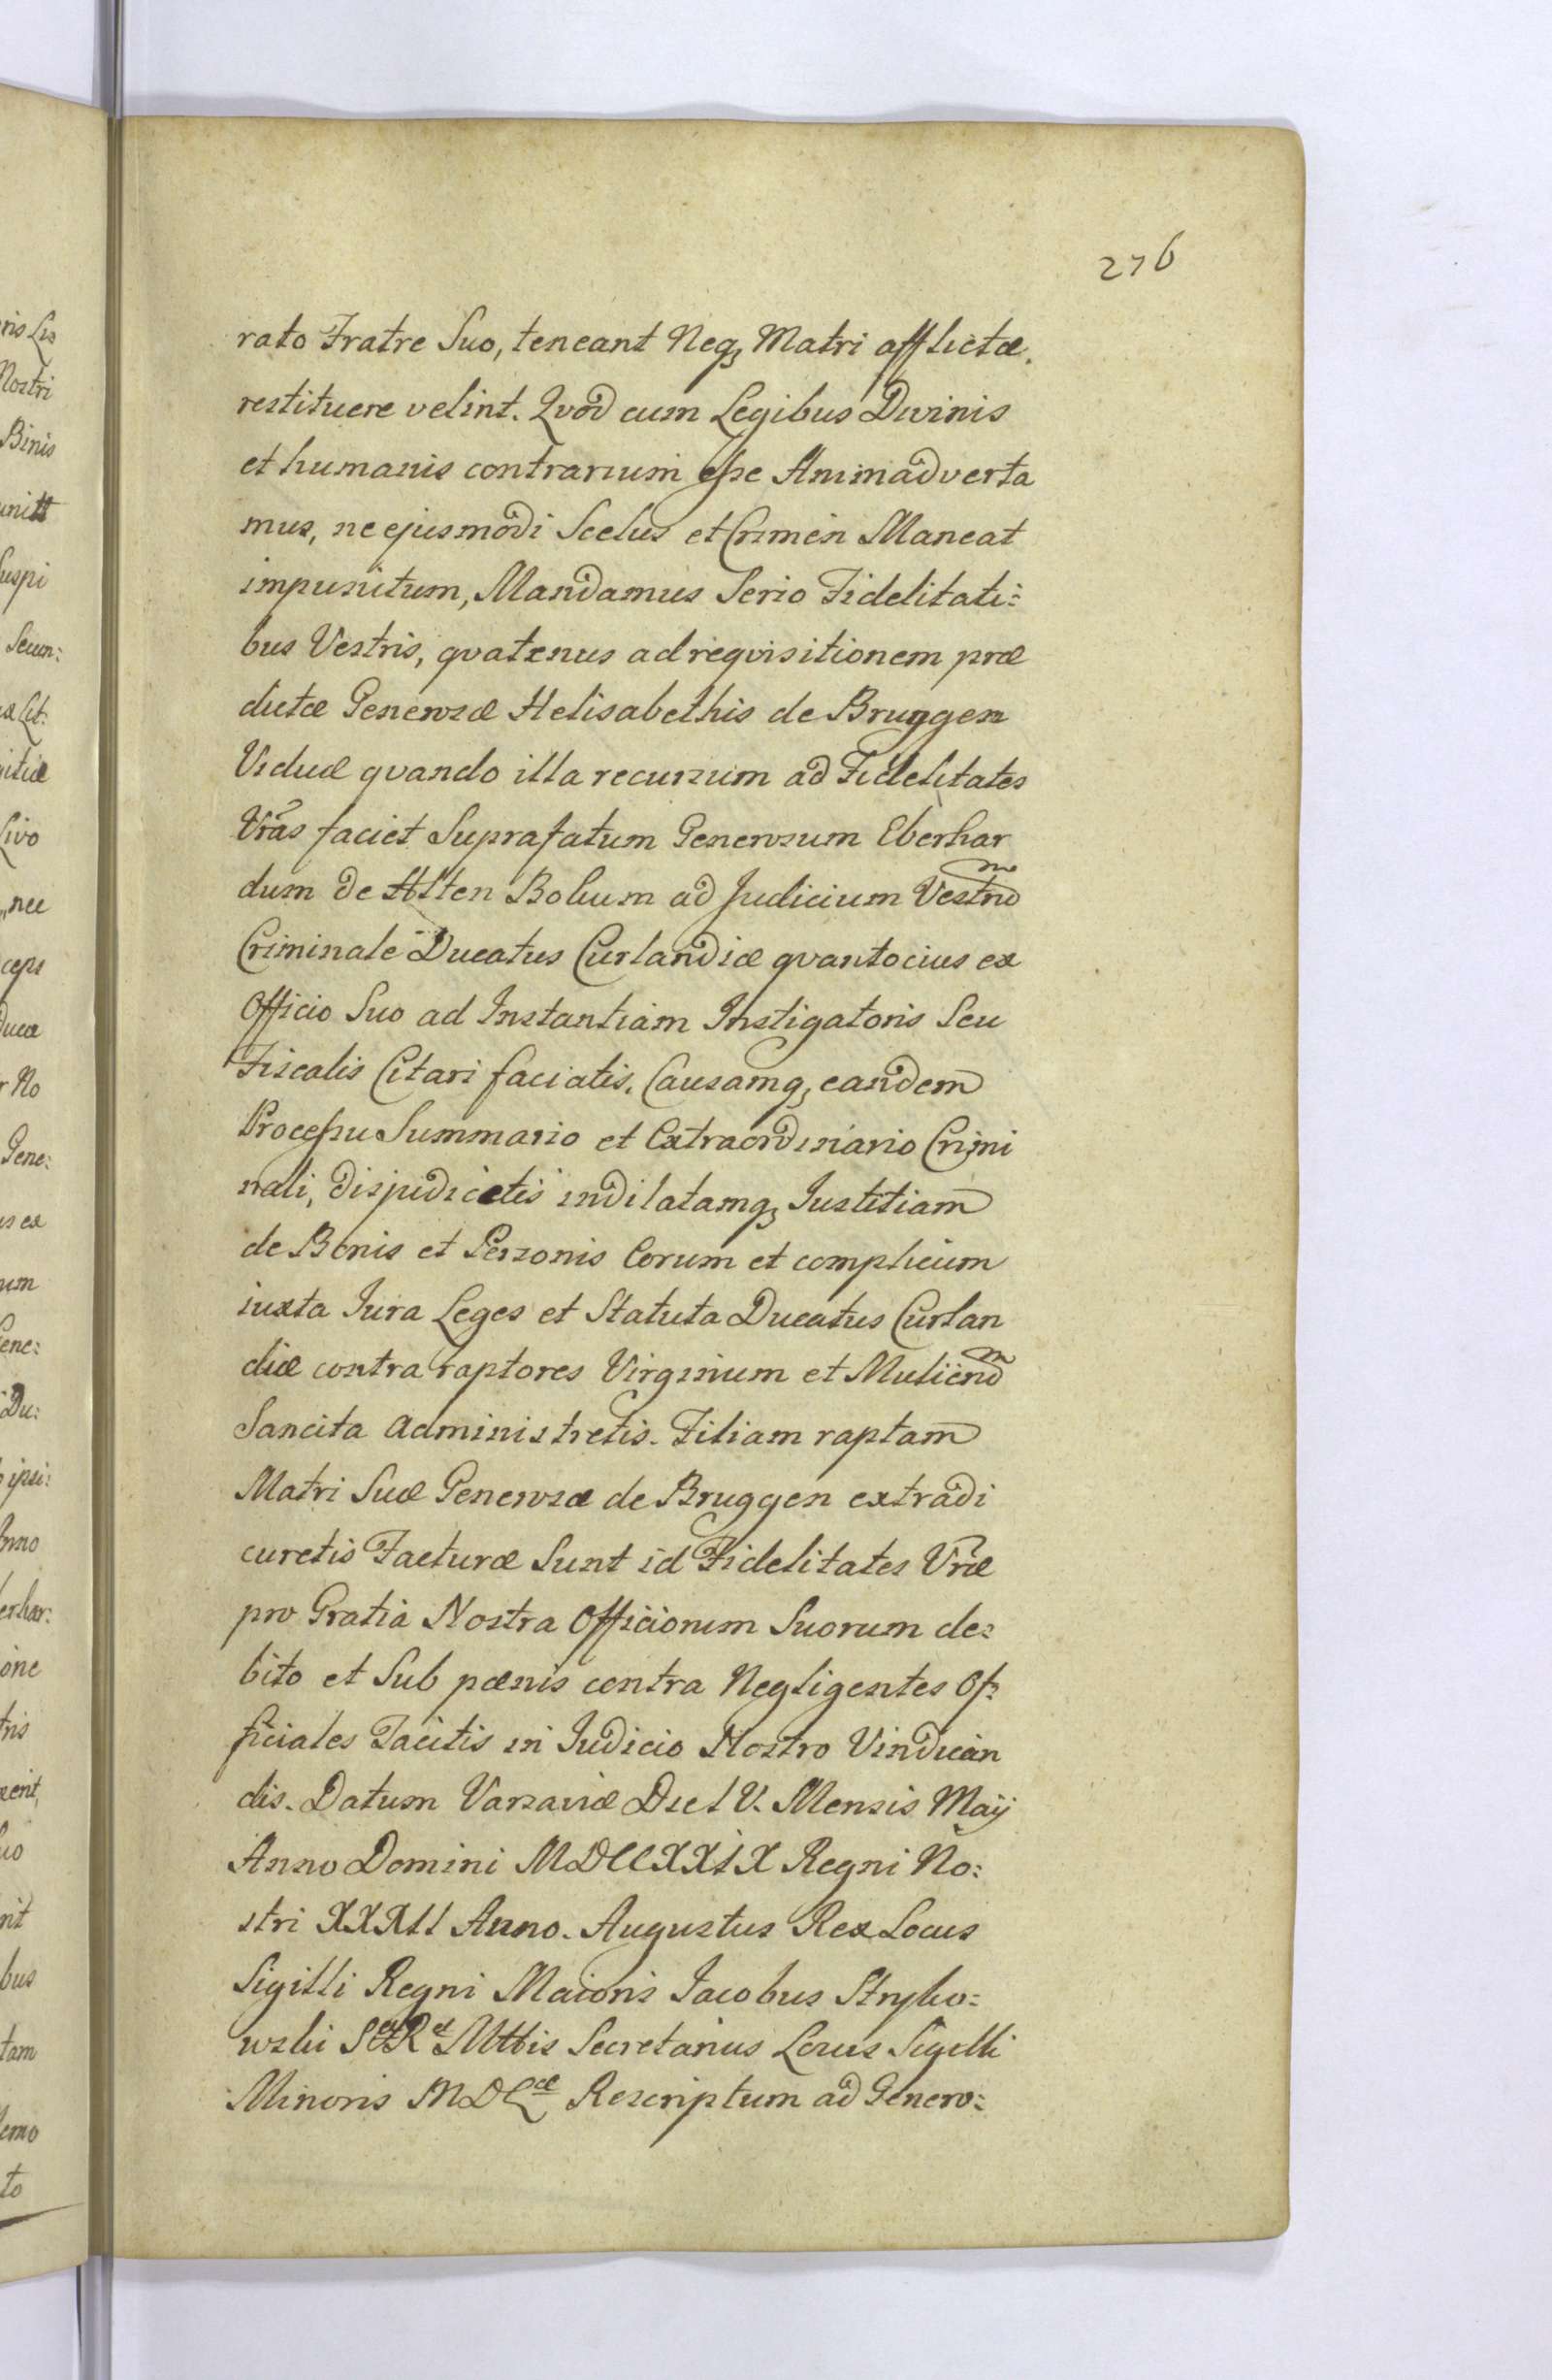 276
rato Fratre Suo, teneant Neq, Matri afflictæ.
restituere velint. Qvod cum Legibus Divinis
et humanis contrarium esse Animadverta
mus, ne ejusmodi Scelus et Crimen Maneat
impunitum, Mandamus Serio Fidelitati:
bus Vestris, qvatenus ad reqvisitionem præ
dictæ Generosæ Helisabethis de Bruggen
Viduæ qvando illa recursum ad Fidelitates
Vrãs faciet Suprafatum Generosum Eberhar
dum de Alten Bokum ad Judicium Vestrũ
Criminale Ducatus Curlandiæ qvantocius ex
Officio Suo ad Instantiam Instigatoris Seu
Fiscalis Citari faciatis, Causamq, eandem
Processu Summario et Extraordinario Crimi
nali, disjudicetis indilatamq, Iustitiam
de Bonis et Personis Eorum et complicium
iuxta Jura Leges et Statuta Ducatus Curlan
diæ contra raptores Virginum et Mulierũ
Sancita administretis. Filiam raptam
Matri Suæ Generosæ de Bruggen extradi
curetis Facturæ Sunt id Fidelitates Vræ
pro Gratia Nostra Officiorum Suorum de:
bito et Sub pœnis contra Negligentes Of:
ficiales Tacitis in Judicio Nostro Vindican
dis. Datum Varsaviæ Die IV. Mensis Maÿ
Anno Domini MDCCXXIX Regni No:
stri XXXII Anno. Augustus Rex Locus
Sigilli Regni Maioris Jacobus Stryko:
wski Mttis Secretarius Locus Sigilli
Minoris MDLæ Rescriptum ad Genero:
ris Lis
Nostri
Binis
Suspi
Secun:
Livo
nec
ceps
Gene:
Du:
Anno
one
bus
tam
to